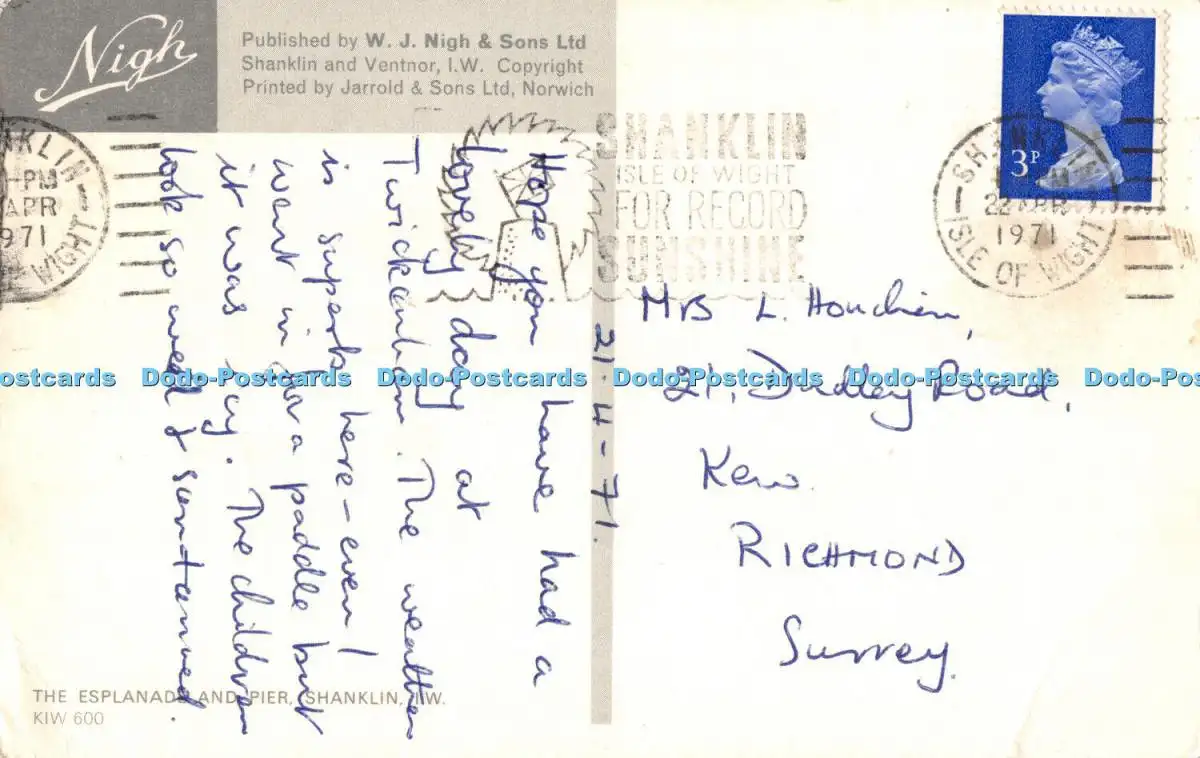 Nigh
Published by W. J. Nigh & Sons Ltd
Shanklin and Ventnor, I.W. Copyright
Printed by Jarrold & Sons Ltd, Norwich
SHANKLIN
ISLE OF WIGHT
FOR RECORD
SUNSHINE
3P
SHANKLIN
22 APR
1971
ISLE OF WIGHT
ANKLIN
PM
APR
971
WIGHT
21-4-71.
Hope you have had a
lovely day at
Twickenham. The weather
is superb here - even I
went in for a paddle but
it was icy. The children
look so well & suntanned.
Mrs L. Houchin,
21, Dudley Road,
Kew.
RICHMOND
Surrey.
THE ESPLANADE AND PIER, SHANKLIN, I.W.
KIW 600
Postcards Dodo-Postcards Dodo-Postcards Dodo-Postcards Dodo-Postcards Dodo-Post